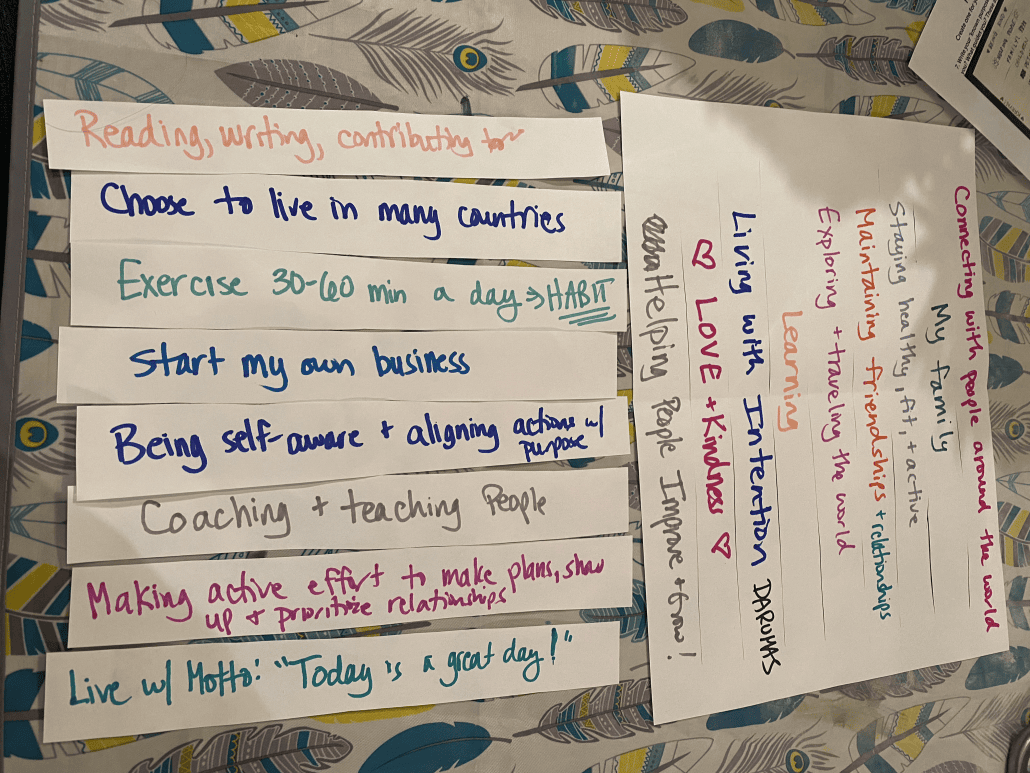 Reading, writing, contributing
Choose to live in many countries
Exercise 30-60 min a day ⇒ HABIT
Start my own business
Being self-aware + aligning actions w/
purpose
Coaching + teaching People
Making active effort to make plans, show
up + prioritize relationships
Live w/ Motto: "Today is a great day!"
Connecting with people around the world
My family
Staying healthy, fit, + active
Maintaining friendships + relationships
Exploring + traveling the world
Learning
Living with Intention DARUMAS
♡ LOVE + Kindness ♡
Helping People Improve + Grow!